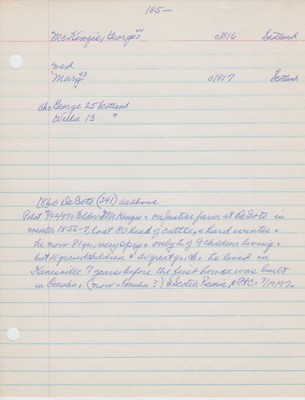 165—
McKenzie, George c1816 Scotland
wed
Mary c1817 Scotland
ch: George 25 Scotland
Willie 13 "
1860 DeSoto (241) as above
Pilot 9/22/97: Elder McKenzie on Justice farm at DeSoto in
winter 1856-7, lost 80 head of cattle, a hard winter.
he now 81 yr, very spry. only 2 of 9 children living,
but 10 grandchildren & 20 great gr. ch. he lived in
Kanesville 7 years before the first house was built
in Omaha. (now - Omaha?) Scotch Picnic 7/19/97.